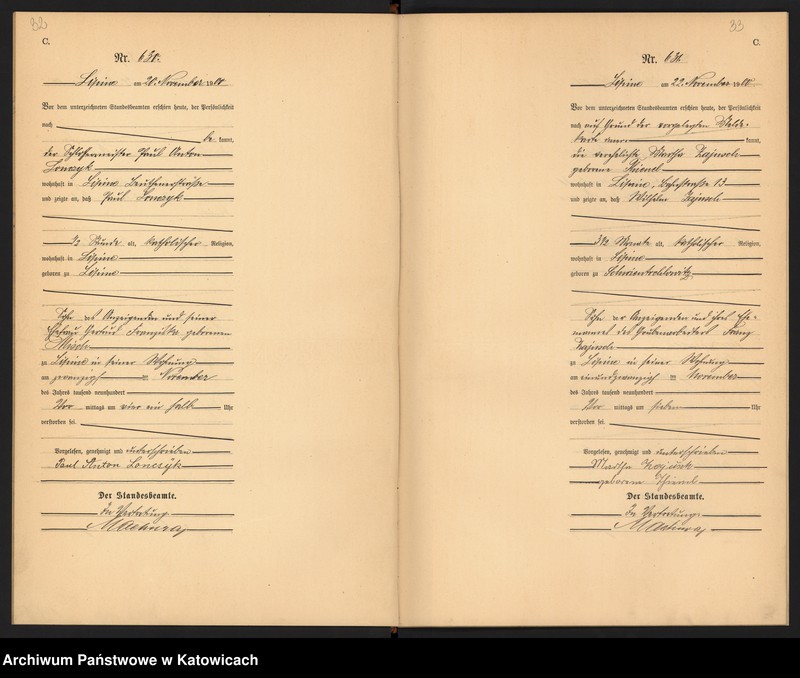 32
C.
Nr. 630.
Lipine am 20. November 1900
Vor dem unterzeichneten Standesbeamten erschien heute, der Persönlichkeit
nach
be kannt,
der Schlossermeister Paul Anton
Lonczyk
wohnhaft in Lipine Beuthenerstraße
und zeigte an, daß Paul Lonczyk
1/2 Stunde alt, katholischer Religion,
wohnhaft in Lipine
geboren zu Lipine
Sohn des Anzeigenden und seiner
Ehefrau Gertrud Franziska geborenen
zu Lipine in seiner Wohnung
am zwanzigsten November
des Jahres tausend neunhundert
Vor mittags um vier ein halb Uhr
verstorben sei.
Vorgelesen, genehmigt und unterschrieben
Paul Anton Lonczyk
Der Standesbeamte.
In Vertretung.
33
C.
Nr. 631.
Lipine am 22. November 1900.
Vor dem unterzeichneten Standesbeamten erschien heute, der Persönlichkeit
nach auf Grund der vorgelegten Melde-
karte aner kannt,
die verehelichte Martha Zajusch
geborene
wohnhaft in Lipine, Bahnstraße 13
und zeigte an, daß Wilhelm Zajusch
3 1/2 Monate alt, katholischer Religion,
wohnhaft in Lipine
geboren zu Schwientochlowitz
Sohn der Anzeigenden und ihres Ehe-
mannes des Grubenarbeiters Franz
Zajusch
zu Lipine in seiner Wohnung
am einundzwanzigsten November
des Jahres tausend neunhundert
Vor mittags um sieben Uhr
verstorben sei.
Vorgelesen, genehmigt und unterschrieben
Martha Zajusch
geborene
Der Standesbeamte.
In Vertretung.
Archiwum Państwowe w Katowicach